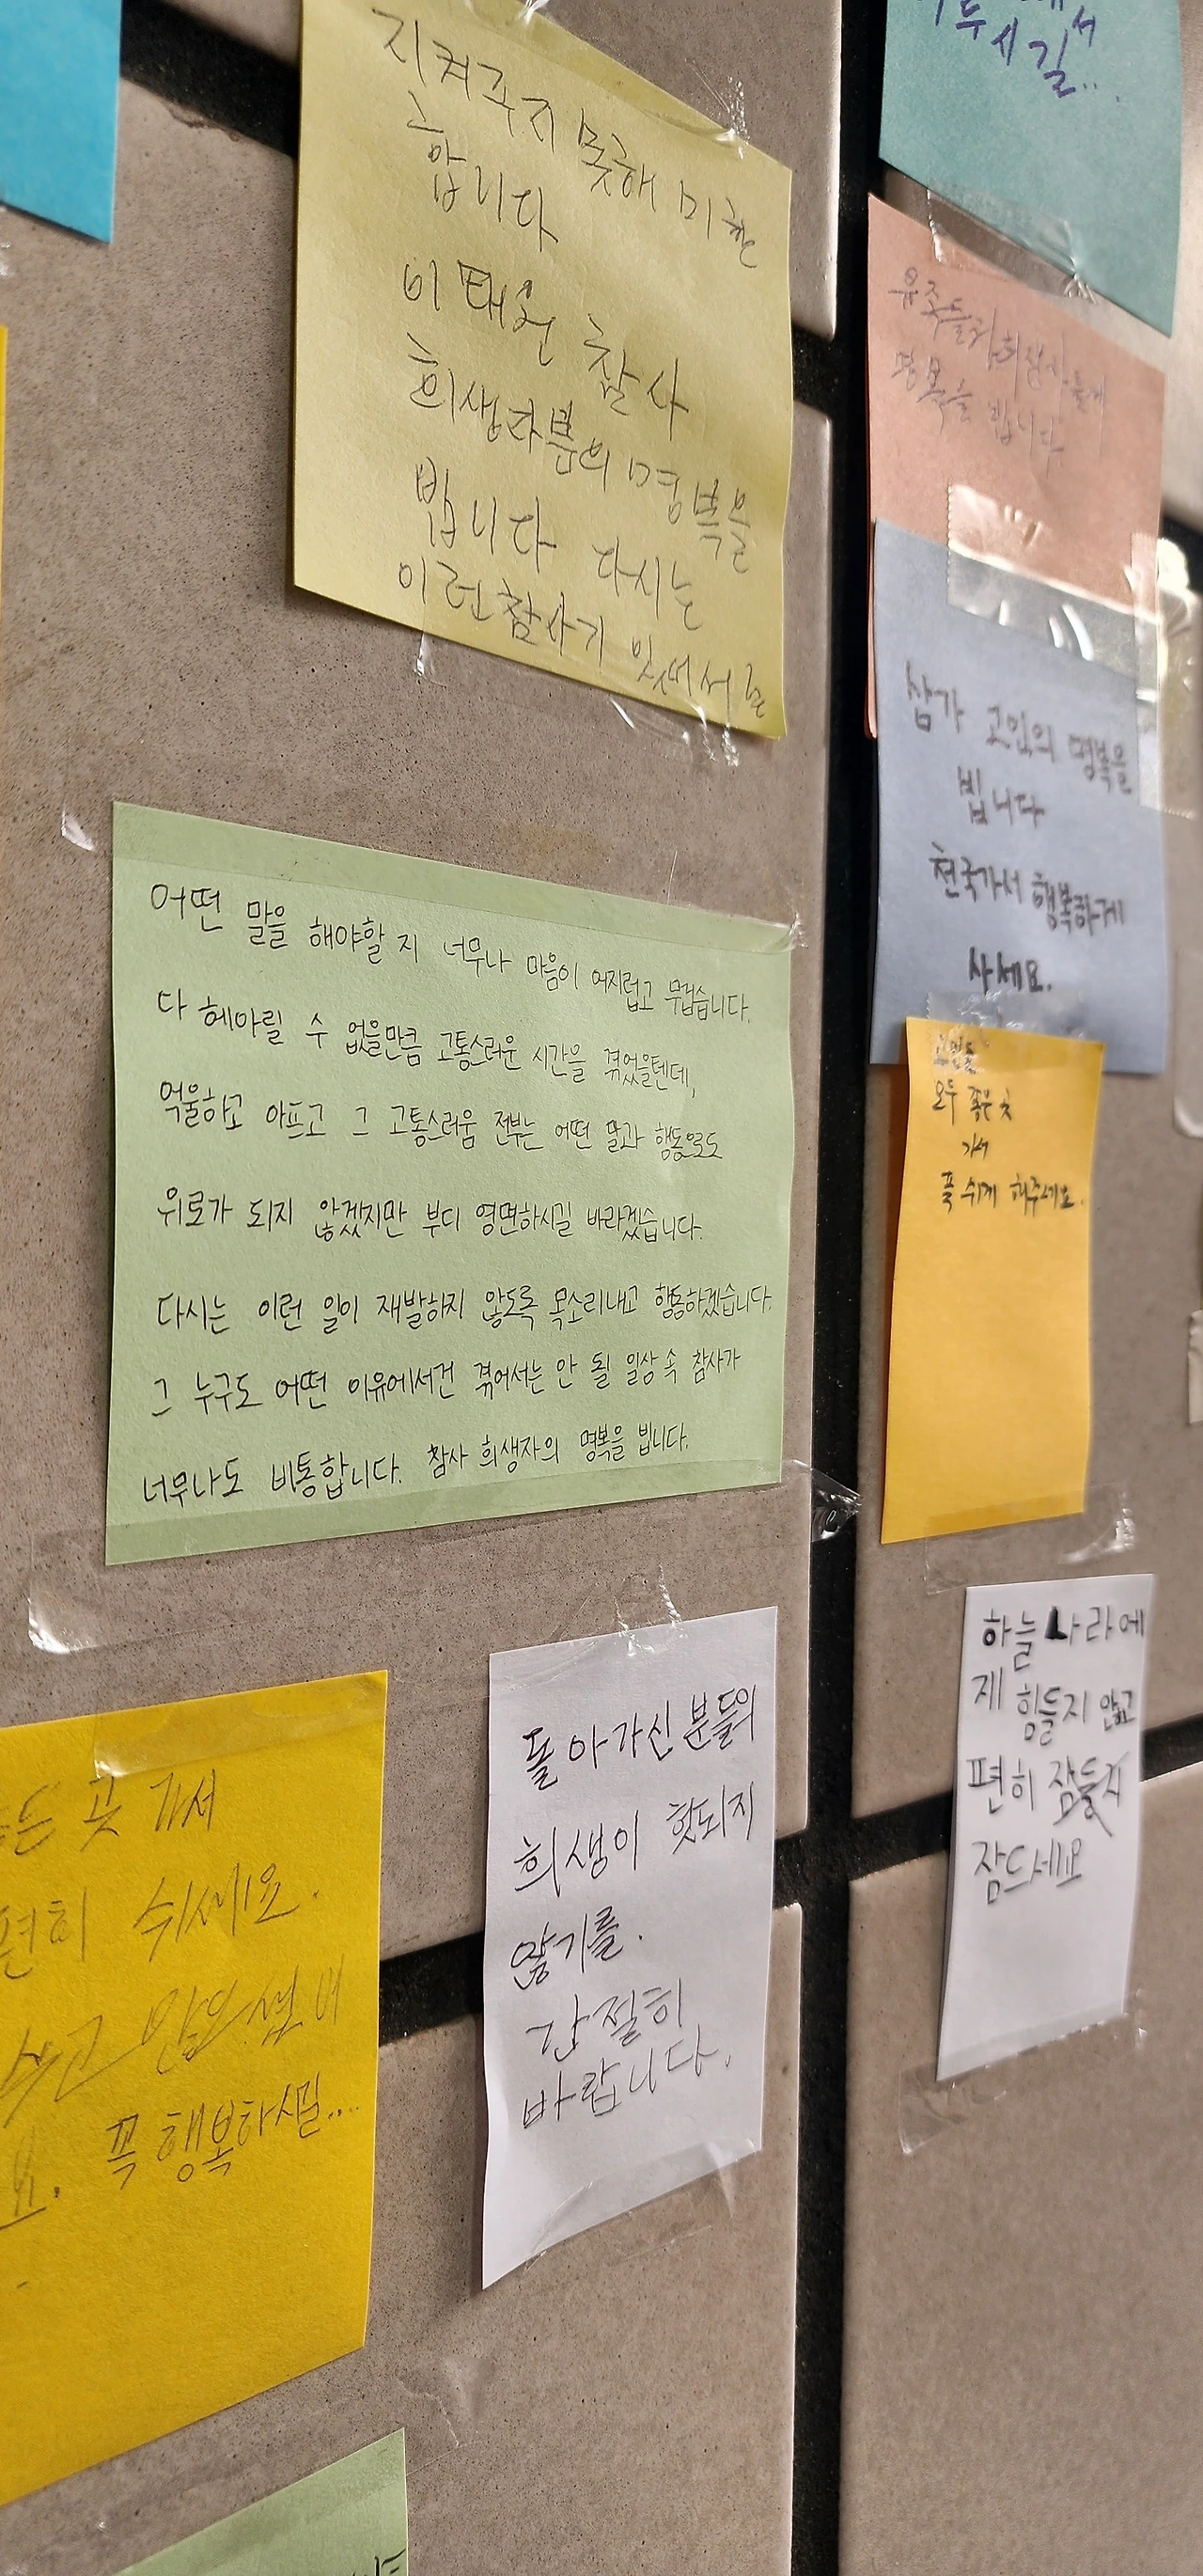 지켜주지 못해 미안
합니다
이태원 찰사
희생자분의 명복을
빕니다 다시는
이런참사가 잇어서는
어떤 말을 해야할 지 너무나 마음이 어지럽고 무겁습니다.
다 헤아릴 수 없을만큼 고통스러운 시간을 겪었을텐데,
억울하고 아프고 그 고통스러움 전부는 어떤 말과 행동으로도
위로가 되지 않겠지만 부디 영면하시길 바라겠습니다.
다시는 이런 일이 재발하지 않도록 목소리내고 행동하겠습니다.
그 누구도 어떤 이유에서건 겪어서는 안 될 일상 속 참사가
너무나도 비통합니다. 참사 희생자의 명복을 빕니다.
곳 가서
편히 쉬세요.
꼭 행복하시길....
돌아가신 분들의
희생이 헛되지
않기를.
간절히
바랍니다.
유족들과 희생자들께
명복을 빕니다
삼가 고인의 명복을
빕니다
천국가서 행복하게
사세요.
모두 좋은 곳
가서
푹 쉬게 해주세요.
하늘나라에
제 힘들지 않고
편히 잠들지
잠드세요